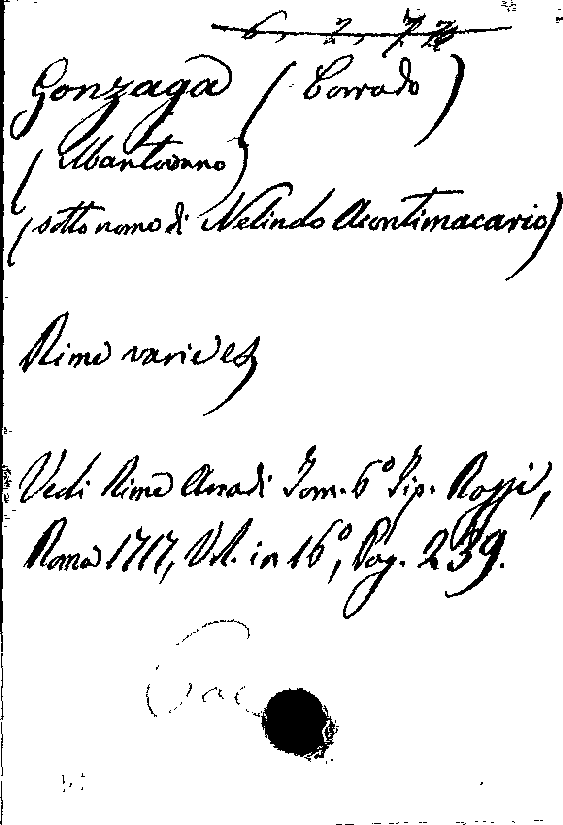 6, 2, 73
Gonzaga (Corrado)
(Mantovano)
(sotto nome di Nelindo Acontimacario)
Rime varie
Vedi Rime Arcadi Tom. 6º Tip. Rossi,
Roma 1717, Vol. in 16º, Pag. 239.